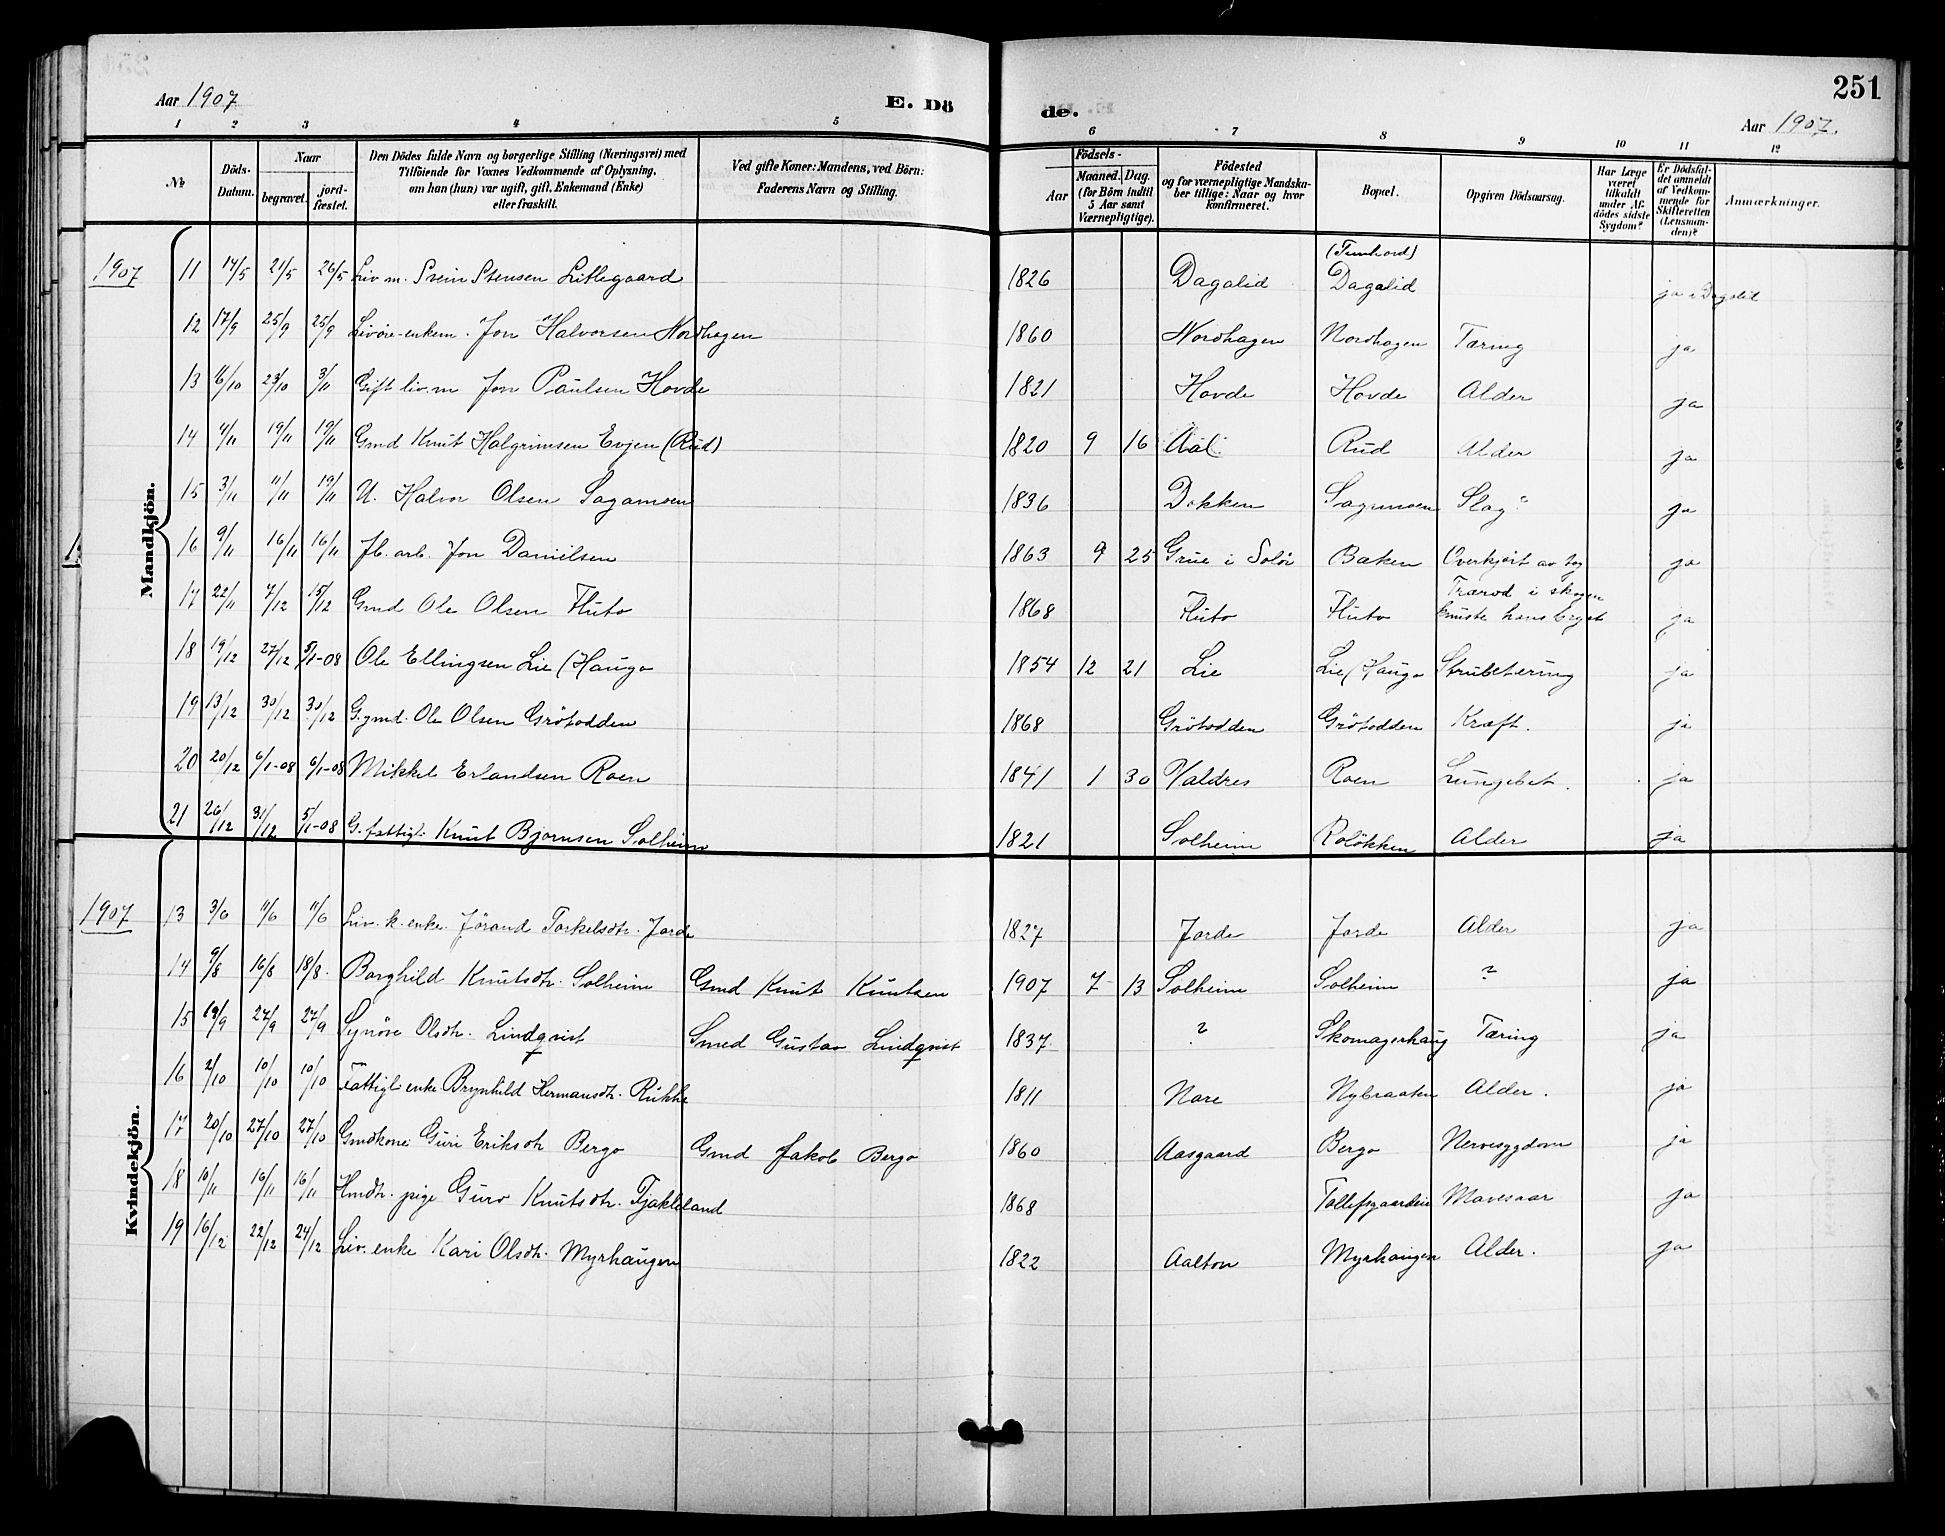 251
Aar 1907
E. Dö
de.
Aar 1907.
1 2 3 4 5 6 7 8 9 10 11 12
№
Döds-Datum.
Naar
begravet.
jord-fæstet.
Den Dödes fulde Navn og borgerlige Stilling (Næringsvei) med
Tilföiende for Voxnes Vedkommende af Oplysning,
om han (hun) var ugift, gift, Enkemand (Enke)
eller fraskilt.
Ved gifte Koner: Mandens, ved Börn:
Faderens Navn og Stilling.
Födsels-
Aar
Maaned. Dag.
(for Börn indtil
5 Aar samt
Værnepligtige).
Födested
og for værnepligtige Mandska-
ber tillige: Naar og hvor
konfirmeret.
Bopæl.
Opgiven Dödsaarsag.
Har Læge
været
tilkaldt
under Af-
dödes sidste
Sygdom?
Er Dödsfal-
det anmeldt
af Vedkom-
mende for
Skifteretten
(Lensman-
den)?
Anmærkninger.
Mandkjön.
1907 11 14/5 21/5 26/5 Liv m. Svein Stensen Litlegaard 1826 Dagalid Dagalid ja i Dagalid
12 17/9 25/9 25/9 Livöre-enkem. Jon Halvorsen Nordhagen 1860 Nordhagen Nordhagen Tæring ja
13 16/10 23/10 3/11 Gift liv.m Jon Paulsen Hovde 1821 Hovde Hovde Alder ja
14 4/11 19/11 19/11 Gmd Knut Halgrimsen Evjen (Rud) 1820 9 16 Aal Rud Alder ja
15 3/11 11/11 19/11 U. Halvor Olsen Sagamoen 1836 Dokken Sagmoen Slag ja
16 9/11 16/11 16/11 Jb. arb. Jon Danielsen 1863 9 25 Grue i Solör Baken Overkjört av tog ja
17 22/11 7/12 15/12 Gmd Ole Olsen Fluto 1868 Fluto Fluto Trærod i skogen knuste hans bryst ja
18 19/12 27/12 5/1-08 Ole Ellingsen Lie (Haugo 1854 12 21 Lie Lie (Haugo Strubetæring ja
19 13/12 30/12 30/12 G. gmd. Ole Olsen Grötodden 1868 Grötodden Grötodden Kræft. ja
20 20/12 6/1-08 6/1-08 Mikkel Erlandsen Roen 1841 1 30 Valdres Roen Lungebet. ja
21 26/12 31/12 5/1-08 G. fattigl. Knut Bjornsen Solheim 1821 Solheim Rolökken Alder ja
Kvindekjön.
1907 13 3/6 11/6 11/6 Liv. k. enke. Jörand Torkelsdtr. Jorde 1827 Jorde Jorde Alder ja
14 9/8 16/8 18/8 Borghild Knutsdtr. Solheim Gmd Knut Knutsen 1907 7 13 Solheim Solheim ? ja
15 19/9 27/9 27/9 Synöve Olsdtr. Lindqvist Smed Gustav Lindqvist 1837 ? Skomagerhaug Tæring ja
16 2/10 10/10 10/10 Fattigl. enke Brynhild Hermansdtr. Rukke 1811 Nore Nybraaten Alder. ja
17 20/10 27/10 27/10 Gmdkone Guri Eriksdtr Bergo Gmd Jakob Bergo 1860 Aasgaard Bergo Nervesygdom ja
18 10/11 16/11 16/11 Hmdtr. pige Guro Knutsdtr. Tjakleland 1868 Tollefsgaardeie Mavesaar ja
19 16/12 22/12 24/12 Liv. enke Kari Olsdtr. Myrhaugen 1822 Aalton Myrhaugen Alder. ja